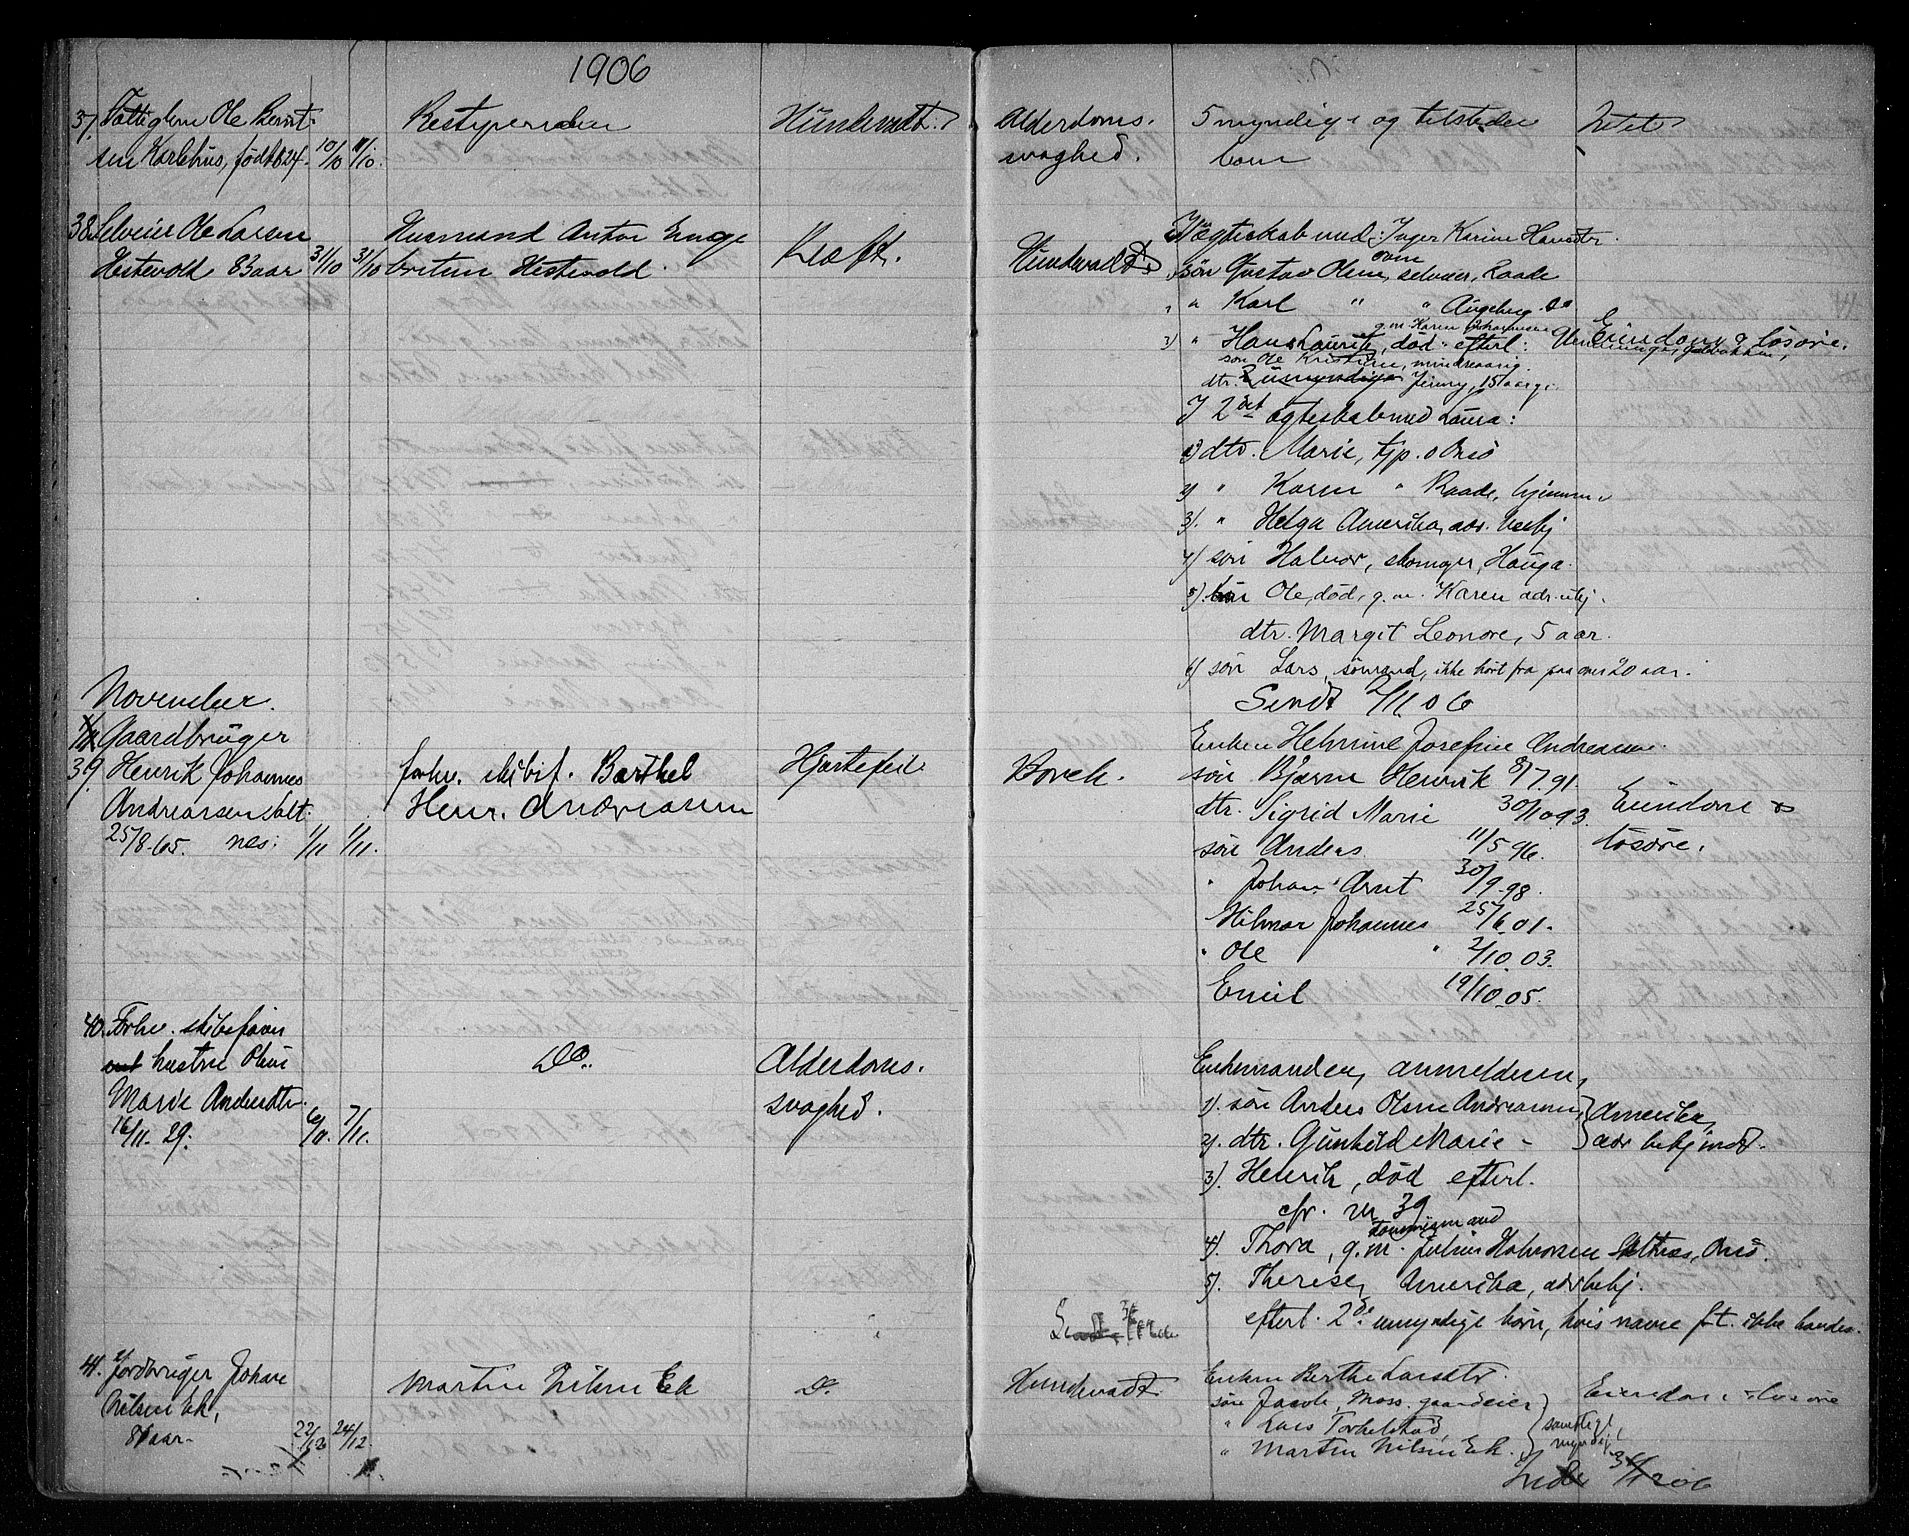 1906
37. Fattiglem Ole Bernt-
sen Karlshus, født 1824. 10/10 11/10.
Bestyreren
Hundevadt.
Alderdoms-
svaghed.
5 myndige og tilstede
Intet
38. Selveier Ole Larsen
Hestevold 83 aar 31/10 31/10
Husmand Anton Enge
britun Hestevold.
Kræft.
Hundevadt
I Ægteskab med: Inger Karine Hansdtr.
søn Gustav Olsen, selveier, Raade
" Karl " " Augeberg. Do
g.m. Karen Johannesen
3) " Hans Laurits, død. efterl:
Eiendom & løsøre.
søn Ole Kristian, mindreaarig.
dtr. 2 umyndige Jenny, 15 aar g.
I 2det ægteskab med Laura:
1) dtr. Marie, tjp. Onsø
2) " Karen " Raade, hjemme
3). " Helga Amerika, adr. ubekj
4) søn Halvor, skomager, Hauga.
5). søn Ole, død, g.m. Karen adr. ubkj.
dtr. Margit Leonore, 5 aar.
6) søn Lars, sømand, ikke hørt fra paa over 20 aar.
Sendt 2/11 06
November.
Gaardbruger
39. Henrik Johannes
Andreassen Salt-
25/8-65. nes: 1/11 1/11.
forhv. skibsf. Barthel
Henr. Andreassen
Hjertefeil
Borch.
Enken Helmine Josefine Andreassen.
søn Bjarne Henrik 8/7 91.
dtr. Sigrid Marie 30/10 93.
søn Anders 11/5 96.
" Johan Arnt 30/9-98.
Hilmar Johannes 25/6 01.
" Ole " 2/10 03.
Emil 19/10 05.
Eiendom &
løsøre.
40. Forhv. skibsfører
hustru Oline
Marie Andersdtr.
16/11-29. 6/11. 7/11.
Do.
Alderdoms-
svaghed.
Enkemanden, anmelderen,
1). søn Anders Olsen Andreassen,
2). dtr. Gunhild Marie -
Amerika,
adr bekjendt.
3). Henrik, død efterl.
cfr. nr 39
tømmermand
4). Thora, g.m. Julius Halvorsen Saltnes, Onsø.
5). Therese, Amerika, adr bekj.
efterl. 2de umyndige børn, hvis navne f.t. ikke haves.
41. Jordbruger Johan
Nilsen Ek,
81 aar. 22/12 24/12.
Martin Nilsen Ek
Do.
Hundevadt
Enken Berthe Larsdtr.
søn Jacob, Moss. gaardeier
" Lars Torkelstad,
" Martin Nilsen Ek.
samtlige
myndige
Eiendom & løsøre
31/12 06